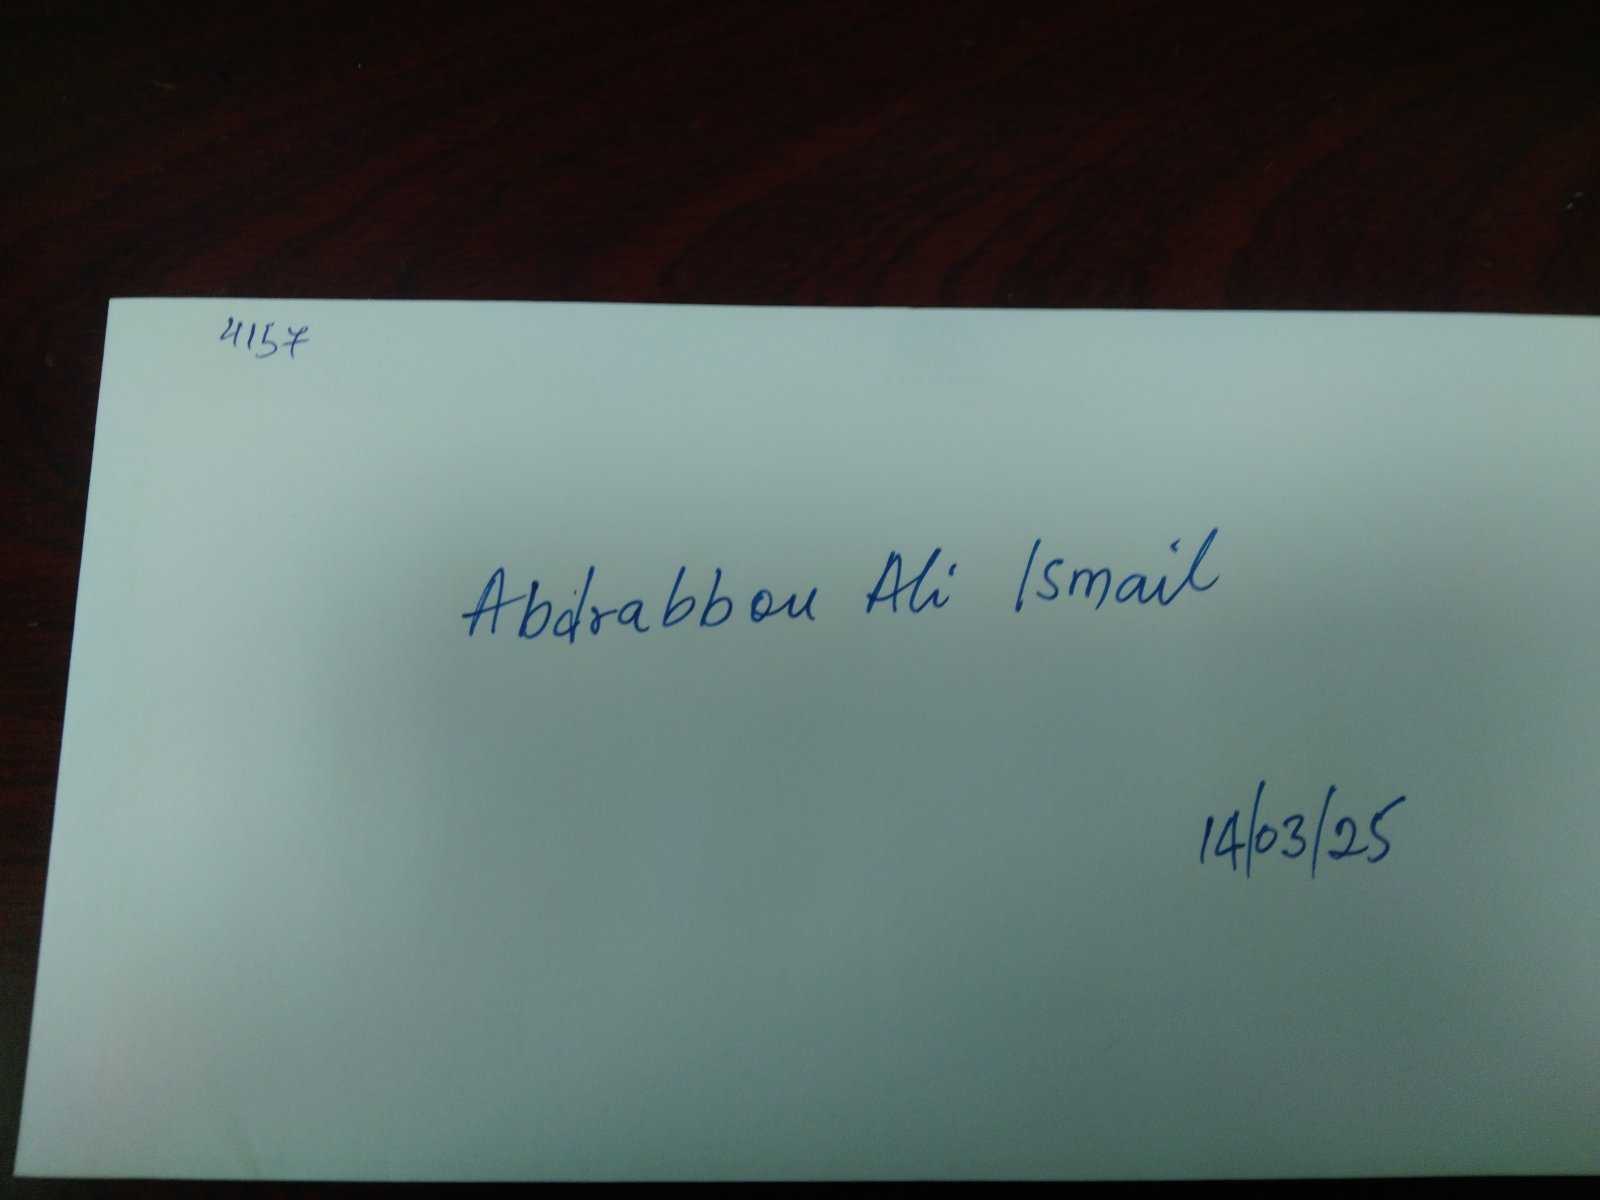 4157
Abdrabbou Ali Ismail
14/03/25